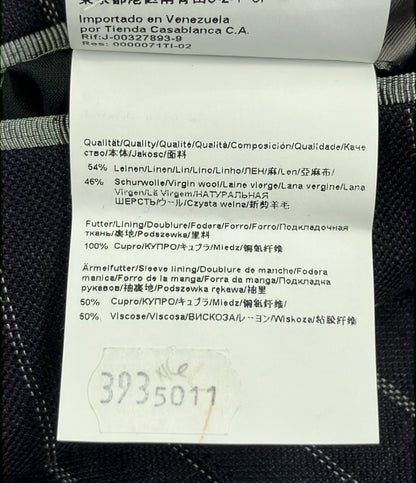 Importado en Venezuela
por Tienda Casablanca C.A.
Rif:J-00327893-9
Res: 0000071TI-02
Qualität/Quality/Qualité/Qualità/Composición/Qualidade/Каче
ство/本体/Jakosc/面料
54% Leinen/Linen/Lin/Lino/Linho/ЛЕН/麻/Len/亞麻布/
46% Schurwolle/Virgin wool/Laine vierge/Lana vergine/Lana
Virgen/Lã Virgem/НАТУРАЛЬНАЯ
ШЕРСТЬ/ウール/Czysta welna/新剪羊毛
Futter/Lining/Doublure/Fodera/Forro/Forro/Подкладочная
ткань/裏地/Podszewka/里料
100% Cupro/КУПРО/キュプラ/Miedz/铜氨纤维
Ärmelfutter/Sleeve lining/Doublure de manche/Fodera
manica/Forro de la manga/Forro da manga/Подкладка
рукавов/袖裏地/Podszewka rękawa/袖里
50% Cupro/КУПРО/キュプラ/Miedz/铜氨纤维/
50% Viscose/Viscosa/ВИСКОЗА/レーヨン/Wiskoza/粘胶纤维
3935011